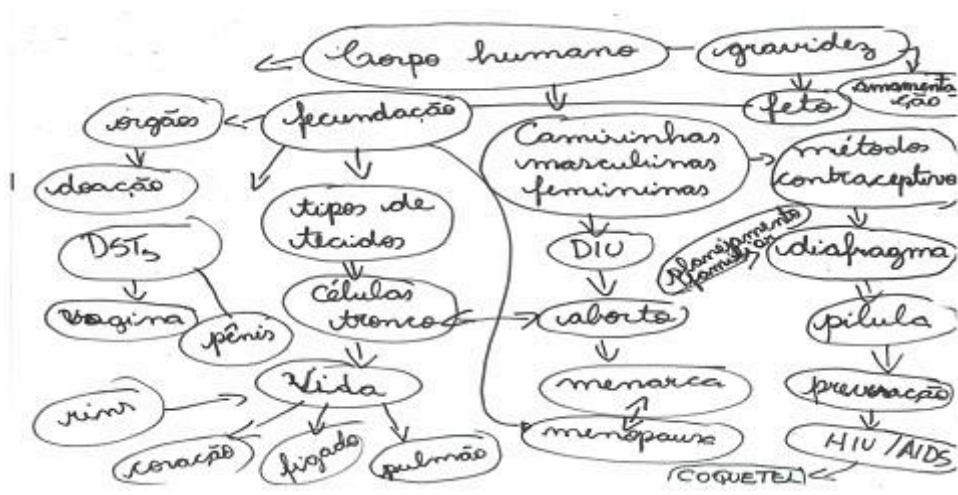 Corpo humano
gravidez
amamenta
ção
feto
orgãos
fecundação
Camisinhas
masculinas
femininas
métodos
contraceptivo
doação
tipos de
tecidos
planejamento
familiar
DSTs
DIU
diafragma
vagina
pênis
células
tronco
aborto
pilula
Vida
menarca
prevenção
rins
coração
figado
pulmão
menopausa
HIV/AIDS
(COQUETEL)